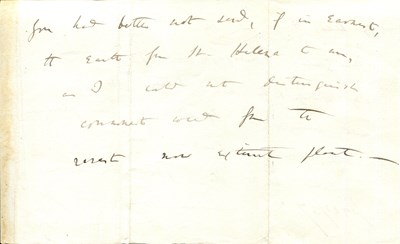 You had better not send, if in earnest,
the Earth from St. Helena to me,
as I could not distinguish
commonest weed from the
rarest now extinct plant.—